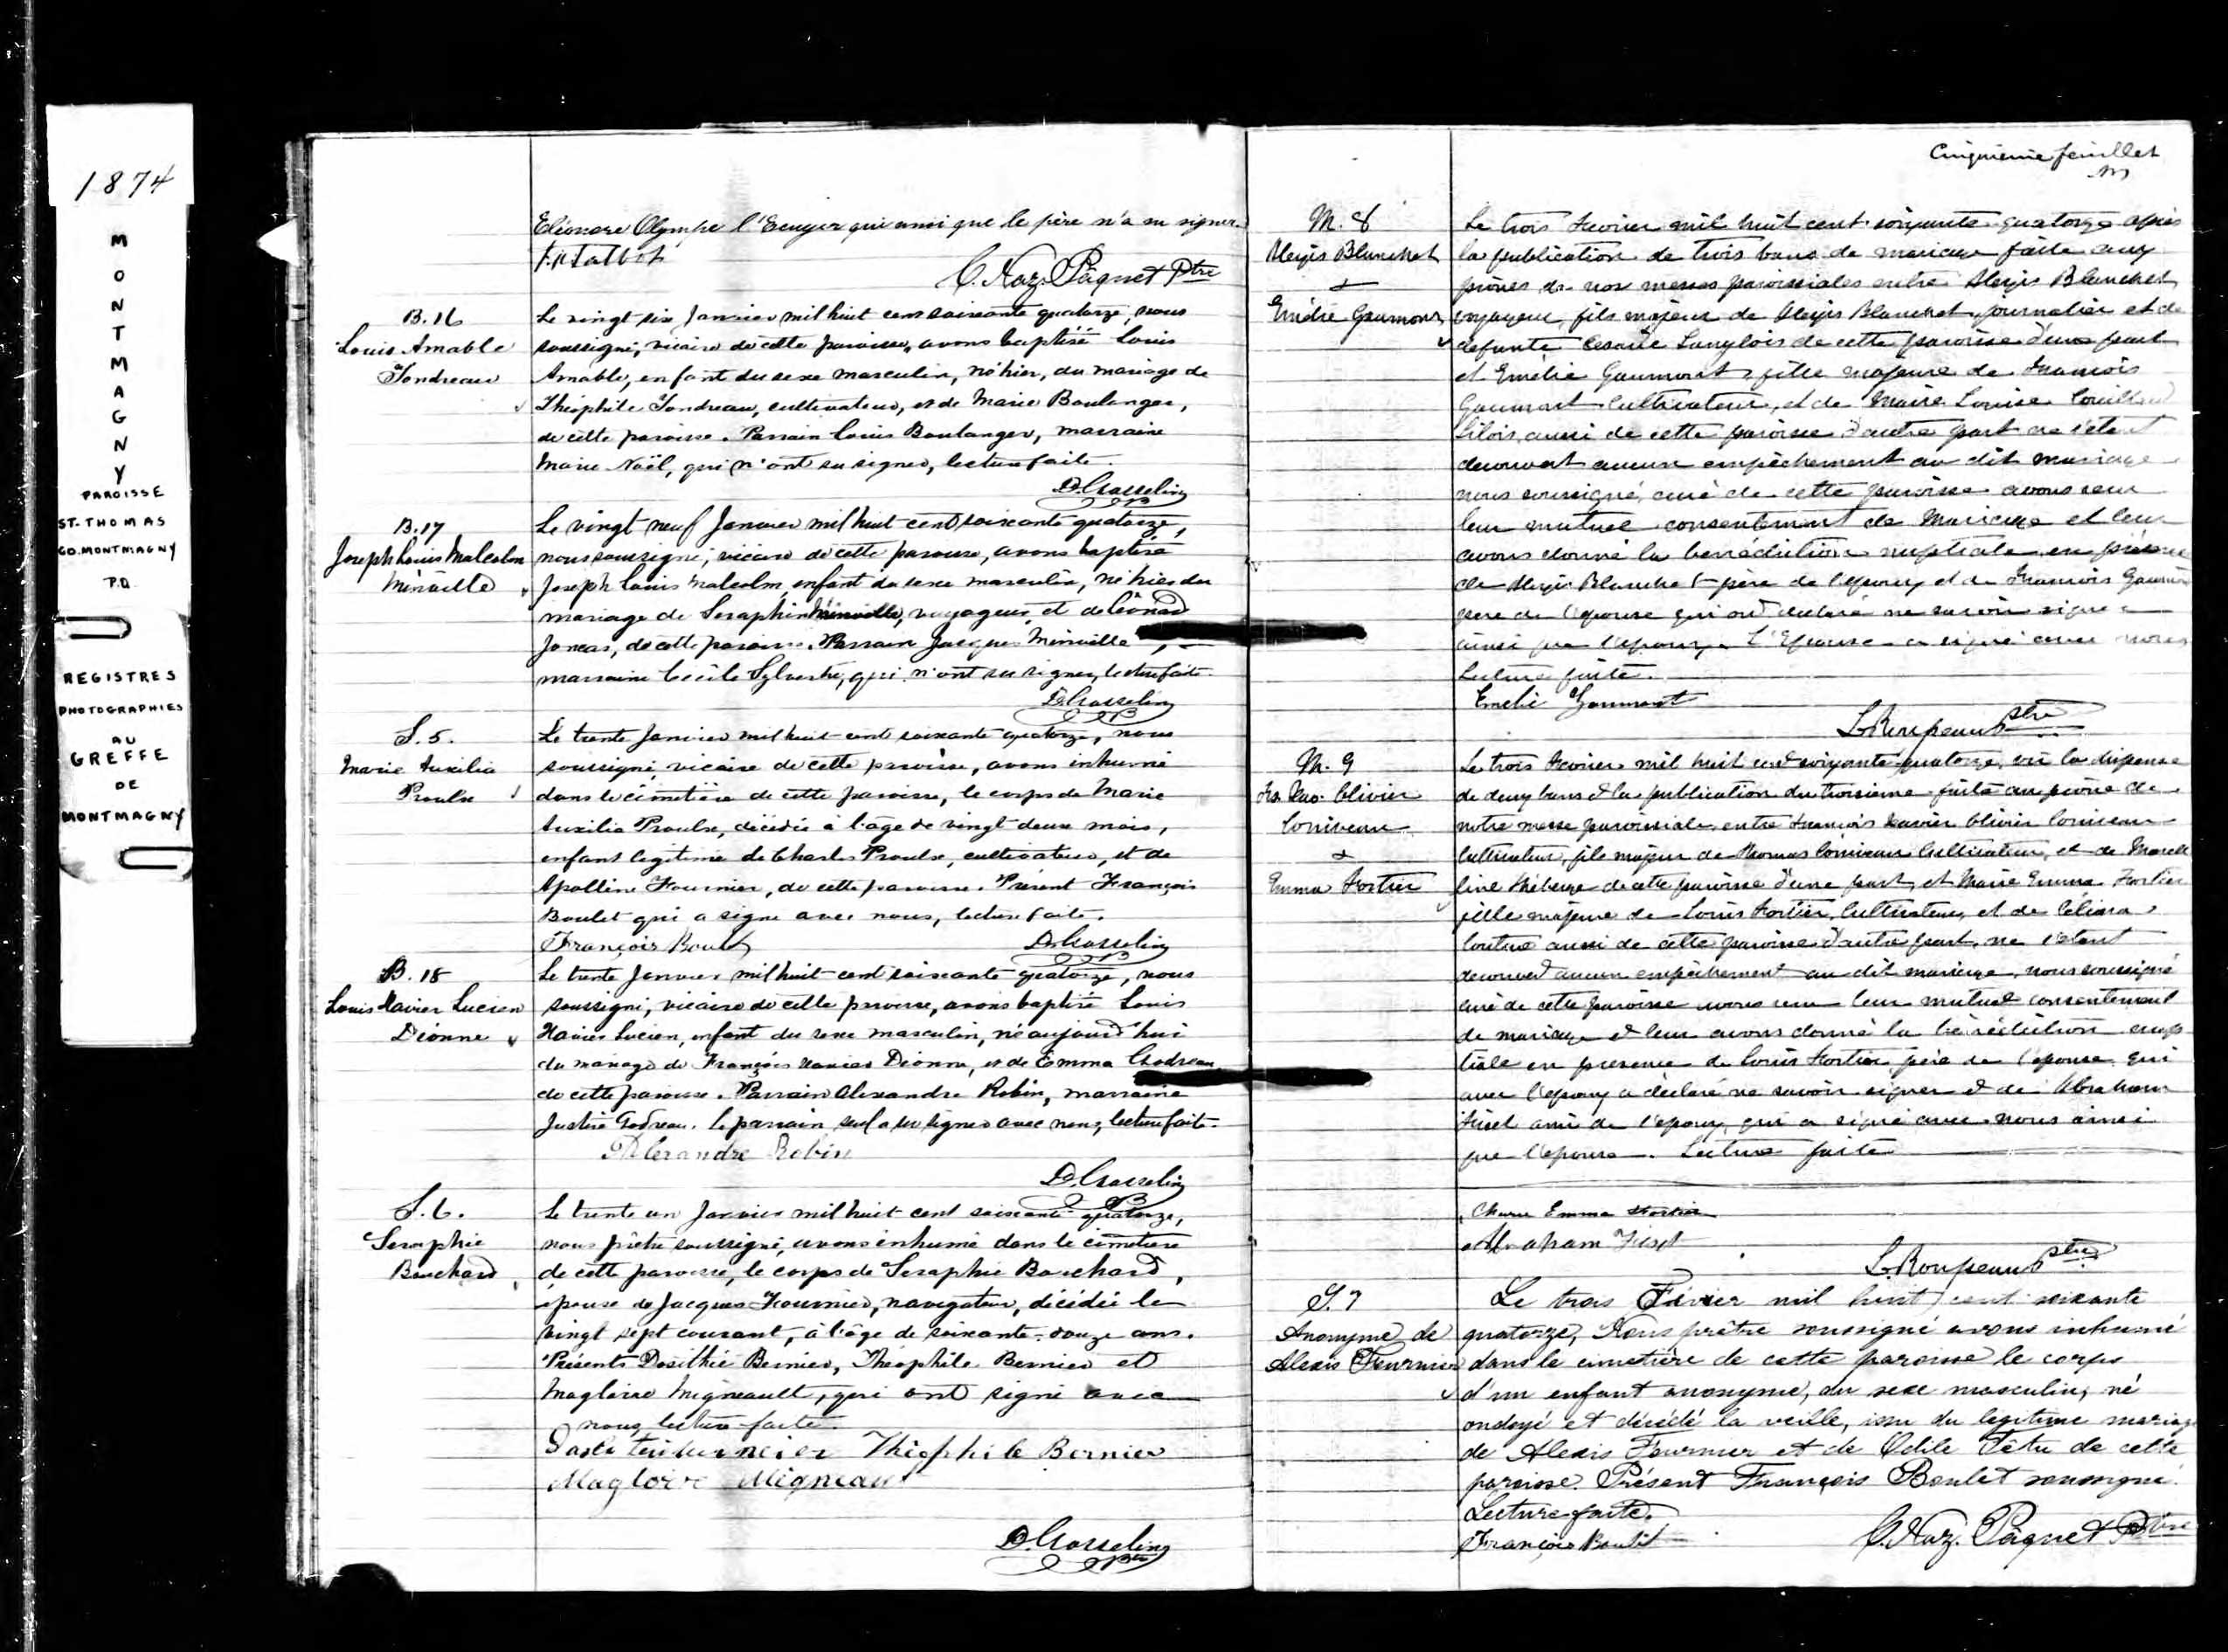 1874
MONTMAGNY
PAROISSE
ST. THOMAS
CO. MONTMAGNY
P.Q.
REGISTRES
PHOTOGRAPHIES
AU
GREFFE
DE
MONTMAGNY
Eléonore Olympe l'Ecuyer qui ainsi que le père n'a su signer.
Talbot
C. Naz. Pâquet Ptre
B. 16
Louis Amable
Jondreau
Le vingt six Janvier mil huit cent soixante quatorze, nous
soussigné, vicaire de cette paroisse, avons baptisé Louis
Amable, enfant du sexe masculin, né hier, du mariage de
Théophile Jondreau, cultivateur, et de Marie Boulanger,
de cette paroisse. Parrain Louis Boulanger, marraine
Marie Noël, qui n'ont su signer, lecture faite.
D. Gosselin
B. 17
Joseph Louis Malcolm
Minville
Le vingt neuf Janvier mil huit cent soixante quatorze,
nous soussigné, vicaire de cette paroisse, avons baptisé
Joseph Louis Malcolm, enfant du sexe masculin, né hier du
mariage de Seraphin Minville, voyageur, et de
Joncas, de cette paroisse. Parrain Jacques Minville,
marraine Cécile Sylvestre, qui n'ont su signer, lecture faite.
D. Gosselin
S. 5.
Marie Auxilia
Proulx
Le trente Janvier mil huit cent soixante quatorze, nous
soussigné, vicaire de cette paroisse, avons inhumé
dans le cimetière de cette paroisse, le corps de Marie
Auxilia Proulx, décédée à l'age de vingt deux mois,
enfant legitime de Charles Proulx, cultivateur, et de
Apolline Fournier, de cette paroisse. Présent François
Boulet qui a signé avec nous, lecture faite.
François Boulet
D. Gosselin
B. 18
Louis Xavier Lucien
Dionne
Le trente Janvier mil huit cent soixante quatorze, nous
soussigné, vicaire de cette paroisse, avons baptisé Louis
Xavier Lucien, enfant du sexe masculin, né aujourd'hui
du mariage de François Xavier Dionne, et de Emma Godreau
de cette paroisse. Parrain Alexandre Robin, marraine
Justine Godreau. le parrain seul a su signer avec nous, lecture faite.
Alexandre Robin
D. Gosselin
S. 6.
Seraphie
Bouchard
Le trente un Janvier mil huit cent soixante quatorze,
nous prêtre soussigné, avons inhumé dans le cimetière
de cette paroisse, le corps de Seraphie Bouchard,
épouse de Jacques Fournier, navigateur, décédée le
vingt sept courant, à l'âge de soixante-douze ans.
Présents Dosithée Bernier, Théophile Bernier et
Magloire Migneault, qui ont signé avec
nous, lecture faite.
Théophile Bernier
Magloire Migneault
D. Gosselin
Cinquième feuillet
M. 8
Alexis Blanchet
&
Emélie Gaumont
Le trois Fevrier mil huit cent soixante quatorze après
la publication de trois bans de mariage faite aux
prônes de nos messes paroissiales entre Alexis Blanchet
voyageur, fils majeur de Alexis Blanchet journalier et de
defunte Cesarie Langlois de cette paroisse d'une part
et Emélie Gaumont, fille majeure de François
Gaumont Cultivateur, et de Marie Louise Couillard
Lilois, aussi de cette paroisse d'autre part ne s'étant
decouvert aucun empêchement au dit mariage
nous soussigné, curé de cette paroisse avons reçu
leur mutuel consentement de Mariage et leur
avons donné la bénédiction nuptiale en présence
de Alexis Blanchet père de l'epoux et de François Gaumont
pere de l'epouse qui ont declaré ne savoir signer
ainsi que l'epoux. L'Epouse a signé avec nous
Lecture faite.
Emelie Gaumont
L. Roupeau Ptre
M. 9
Frs. Xav. Olivier
Corriveau
&
Emma Fortier
Le trois Fevrier mil huit cent soixante quatorze, vû la dispense
de deux bans & la publication du troisieme faite au prône de
notre messe paroissiale, entre François Xavier Olivier Corriveau
Cultivateur, fils majeur de Thomas Corriveau Cultivateur, et de Marcel
line Théberge de cette paroisse d'une part, et Marie Emma Fortier
fille majeure de Louis Fortier, Cultivateur, et de Célina
Couture aussi de cette paroisse d'autre part, ne s'étant
decouvert aucun empêchement au dit mariage, nous soussigné
curé de cette paroisse avons reçu leur mutuel consentement
de mariage & leur avons donné la bénédiction nup
tiale en presence de Louis Fortier père de l'epouse qui
avec l'epoux a déclaré ne savoir signer & de Abraham
Fiset ami de l'epoux, qui a signé avec nous ainsi
que l'epouse. Lecture faite
Marie Emma Fortier
Abraham Fiset
L. Roupeau Ptre
S. 7
Anonyme de
Alexis Fournier
Le trois Février mil huit cent soixante
quatorze, Nous prêtre soussigné avons inhumé
dans le cimetière de cette paroisse le corps
d'un enfant anonyme, du sexe masculin, né
ondoyé et décédé la veille, issu du legitime mariage
de Alexis Fournier et de Odile Têtu de cette
paroisse. Présent François Boulet soussigné.
Lecture faite.
François Boulet
C. Naz. Pâquet Ptre